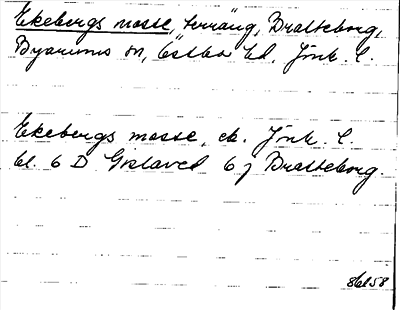 Ekebergs mosse, "terräng, Bratteborg,
Byarums sn, Östbo hd. Jönk. l.
Ekebergs mosse, ek. Jönk. l.
bl. 6 D Gislaved 6 j Bratteborg.